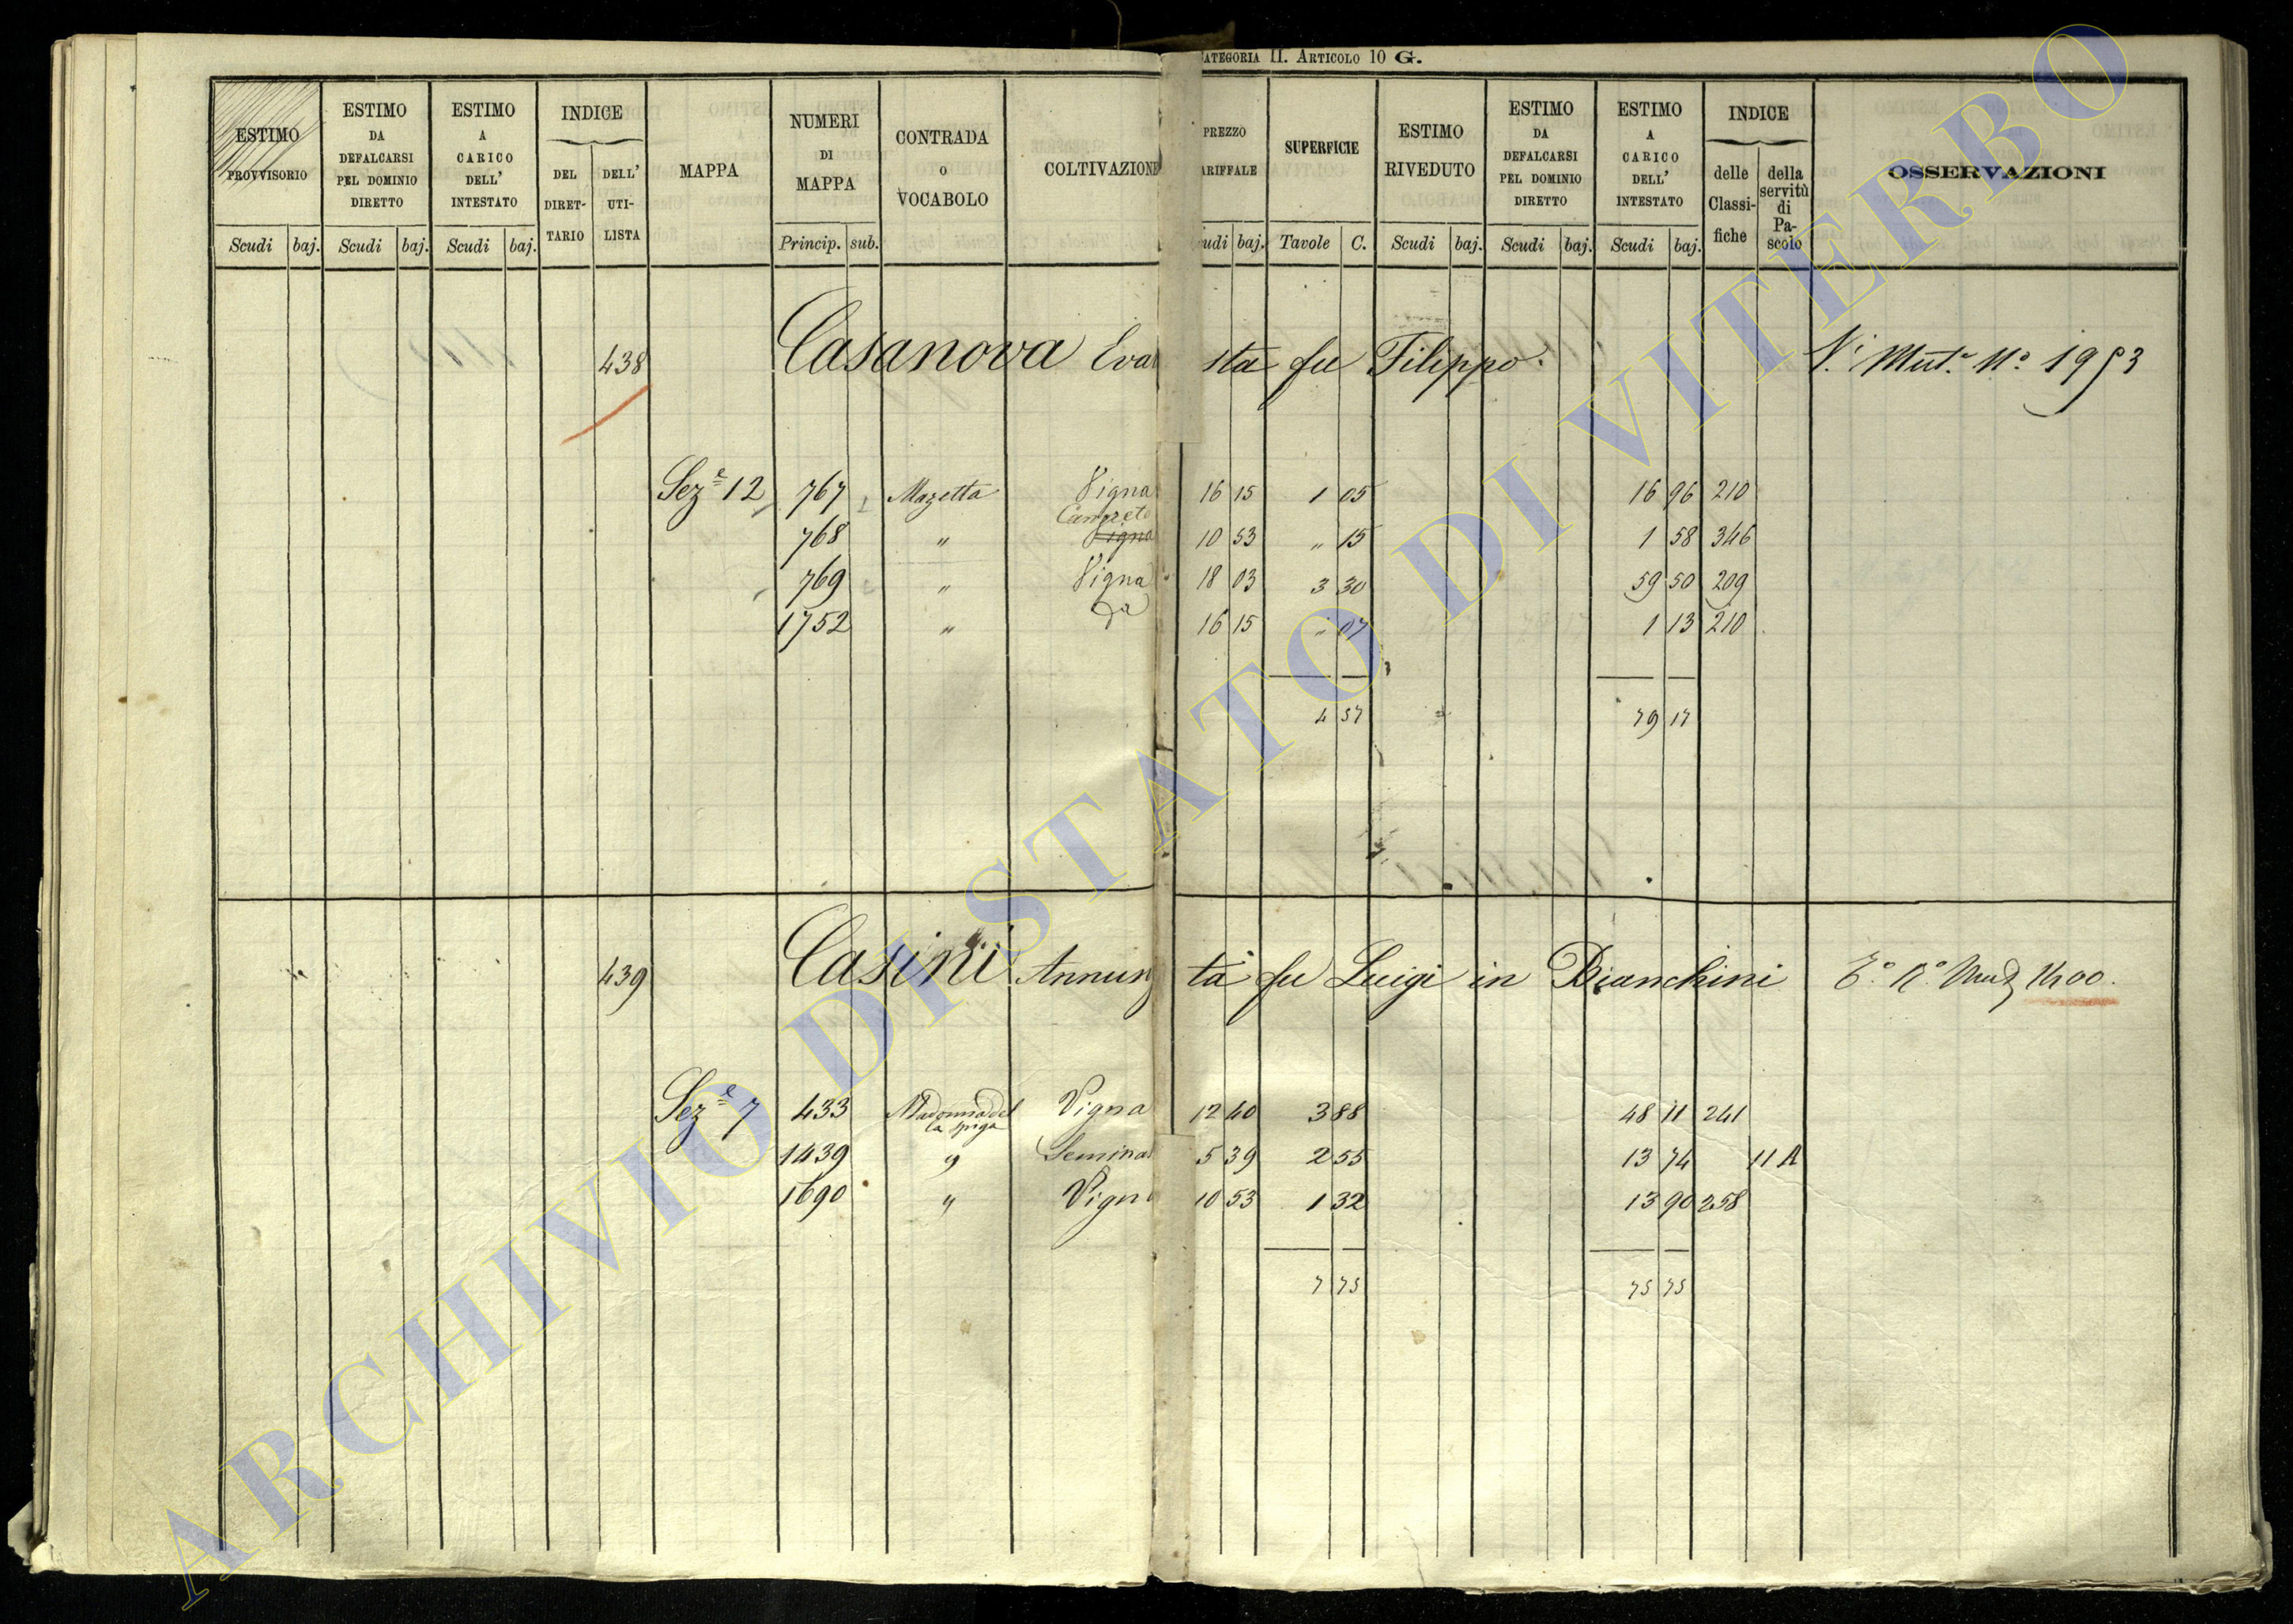 CATEGORIA II. ARTICOLO 10 G.
ESTIMO PROVVISORIO Scudi baj.
ESTIMO DA DEFALCARSI PEL DOMINIO DIRETTO Scudi baj.
ESTIMO A CARICO DELL' INTESTATO Scudi baj.
INDICE DEL DIRETTARIO DELL' UTILISTA
MAPPA
NUMERI DI MAPPA Princip. sub.
CONTRADA o VOCABOLO
COLTIVAZIONE
PREZZO ARIFFALE udi baj.
SUPERFICIE Tavole C.
ESTIMO RIVEDUTO Scudi baj.
ESTIMO DA DEFALCARSI PEL DOMINIO DIRETTO Scudi baj.
ESTIMO A CARICO DELL' INTESTATO Scudi baj.
INDICE delle Classifiche della servitù di Pascolo
OSSERVAZIONI
438 Casanova Eva sta fu Filippo. Mut. N.o
Sez.e 12 767 Mazetta Vigna 16 15 1 05 16 96 210
Canneto
768 " Vigna 10 53 " 15 1 58 346
769 " Vigna 18 03 3 30 59 50 209
1752 " da 16 15 " 07 1 13 210
4 57 79 17
439 Casini Annunz ta fu Luigi in Bianchini 1400.
Sez.e 7 433 Madonna del Vigna 12 40 3 88 48 11 241
la spiga
1439 " Semina 5 39 2 55 13 74 11 A
1690 " Vign 10 53 1 32 13 90 258
7 75 75 75
ARCHIVIO DI STATO DI VITERBO